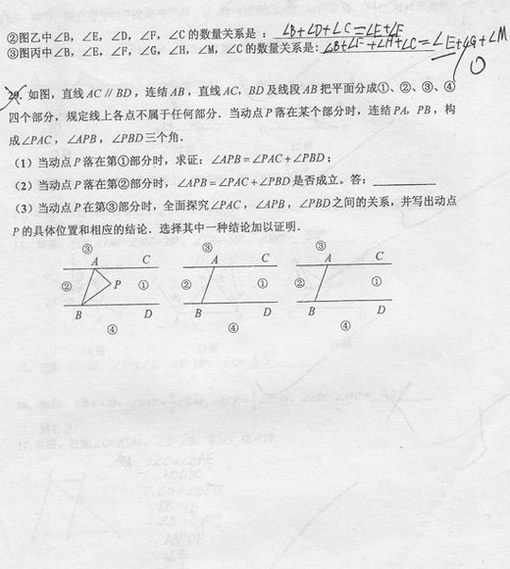 ②图乙中∠B，∠E，∠D，∠F，∠C的数量关系是：∠B+∠D+∠C=∠E+∠F
③图丙中∠B，∠E，∠F，∠G，∠H，∠M，∠C的数量关系是：∠B+∠F+∠H+∠C=∠E+∠G+∠M
29．如图，直线AC∥BD，连结AB，直线AC，BD及线段AB把平面分成①、②、③、④
四个部分，规定线上各点不属于任何部分．当动点P落在某个部分时，连结PA，PB，构
成∠PAC，∠APB，∠PBD三个角．
（1）当动点P落在第①部分时，求证：∠APB=∠PAC+∠PBD；
（2）当动点P落在第②部分时，∠APB=∠PAC+∠PBD是否成立．答：
（3）当动点P在第③部分时，全面探究∠PAC，∠APB，∠PBD之间的关系，并写出动点
P的具体位置和相应的结论．选择其中一种结论加以证明．
③ ③ ③
A C A C A C
② P ① ② ① ② ①
B D B D B D
④ ④ ④